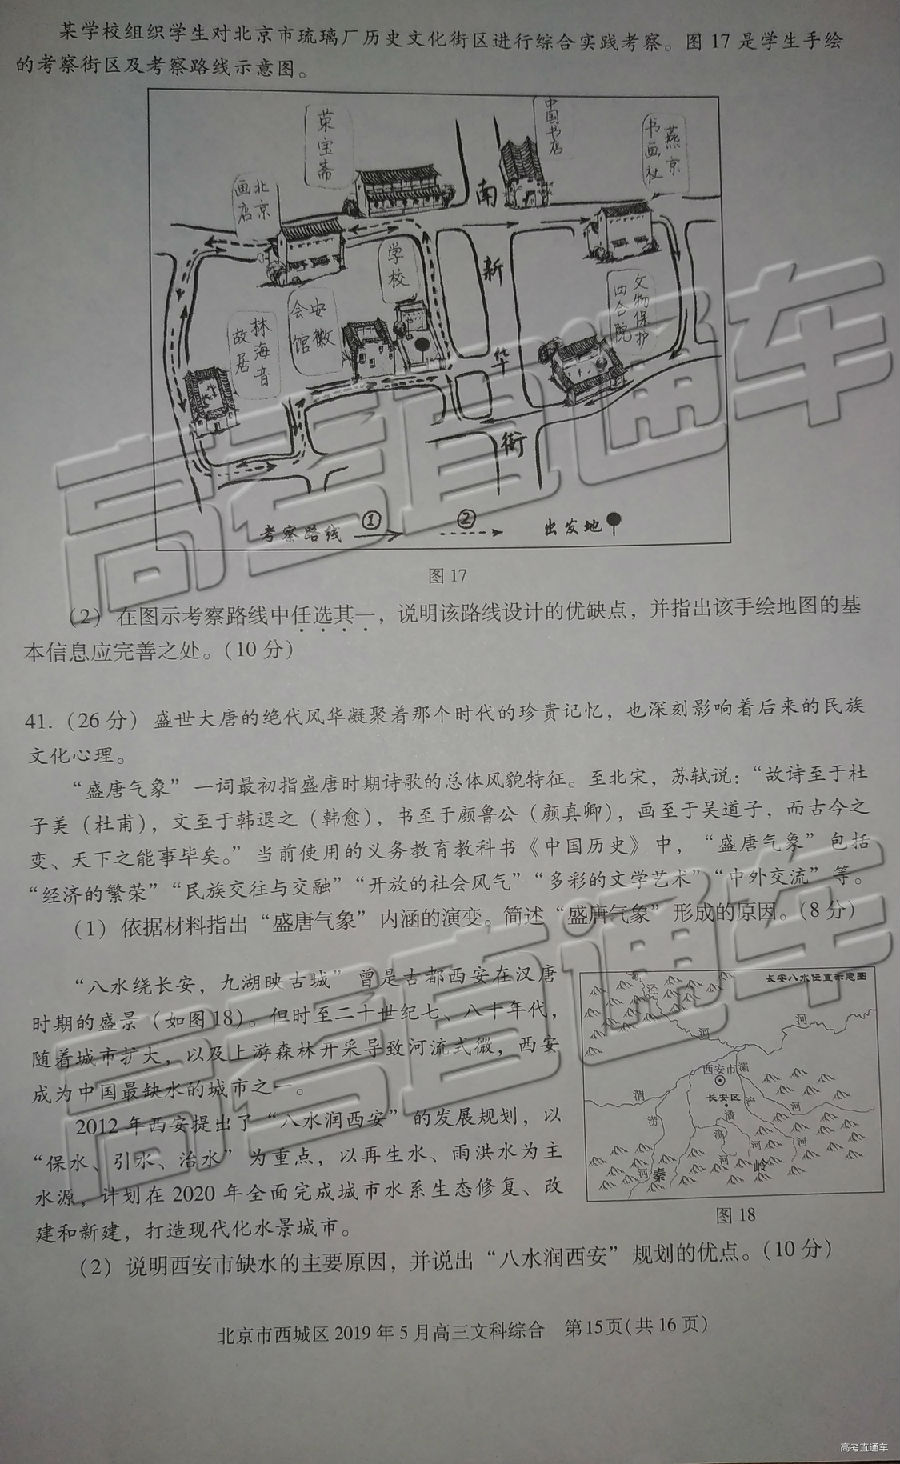 某学校组织学生对北京市琉璃厂历史文化街区进行综合实践考察。图 17 是学生手绘
的考察街区及考察路线示意图。
荣宝斋
中国书店
燕京
书画社
北京
画店
南
学校
新
安徽
会馆
文物保护
四合院
林海音
故居
华
街
考察路线 ① ② 出发地
图 17
（2）在图示考察路线中任选其一，说明该路线设计的优缺点，并指出该手绘地图的基
本信息应完善之处。（10 分）
41.（26 分）盛世大唐的绝代风华凝聚着那个时代的珍贵记忆，也深刻影响着后来的民族
文化心理。
“盛唐气象”一词最初指盛唐时期诗歌的总体风貌特征。至北宋，苏轼说：“故诗至于杜
子美（杜甫），文至于韩退之（韩愈），书至于颜鲁公（颜真卿），画至于吴道子，而古今之
变、天下之能事毕矣。”当前使用的义务教育教科书《中国历史》中，“盛唐气象”包括
“经济的繁荣”“民族交往与交融”“开放的社会风气”“多彩的文学艺术”“中外交流”等。
（1）依据材料指出“盛唐气象”内涵的演变。简述“盛唐气象”形成的原因。（8 分）
“八水绕长安，九湖映古城”曾是古都西安在汉唐
时期的盛景（如图 18）。但时至二十世纪七、八十年代，
随着城市扩大，以及上游森林开采导致河流式微，西安
成为中国最缺水的城市之一。
2012 年西安提出了“八水润西安”的发展规划，以
“保水、引水、治水”为重点，以再生水、雨洪水为主
水源，计划在 2020 年全面完成城市水系生态修复、改
建和新建，打造现代化水景城市。
长安八水位置示意图
河
河
西安市
灞
渭
长安区
河
河
河
河
秦
岭
图 18
（2）说明西安市缺水的主要原因，并说出“八水润西安”规划的优点。（10 分）
北京市西城区 2019 年 5 月高三文科综合 第 15 页（共 16 页）
高考直通车
高考直通车
高考直通车